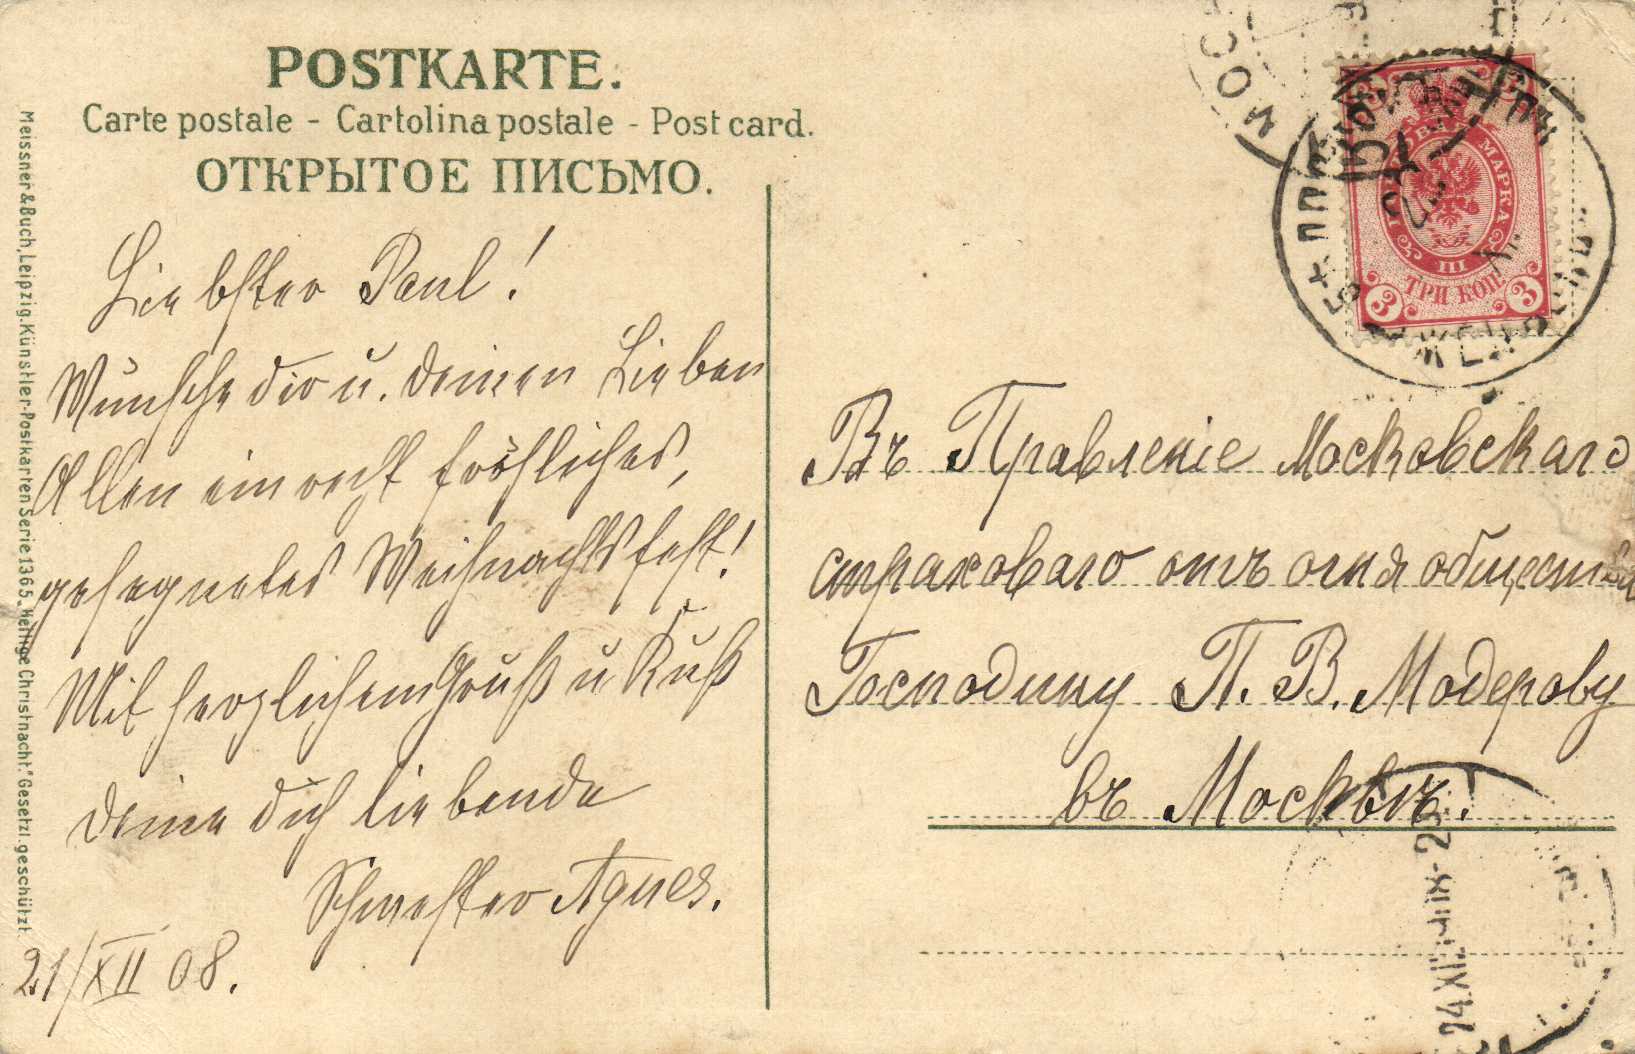 POSTKARTE.
Carte postale - Cartolina postale - Post card.
ОТКРЫТОЕ ПИСЬМО.
Meissner & Buch, Leipzig. Künstler-Postkarten Serie 1365. „Heilige Christnacht." Gesetzl. geschützt.
Liebster Paul!
Wünsche dir u. deinen Lieben
Allen ein recht fröhliches,
gesegnetes Weihnachtsfest!
Mit herzlichem Gruß u Kuß
deine dich liebende
Schwester Agnes.
21/XII 08.
МОС
МАРКА
III
ТРИ КОП.
3 3
Въ Правленіе Московскаго
страховаго отъ огня общества
Господину П. В. Модерову
въ Москвѣ.
24.XII